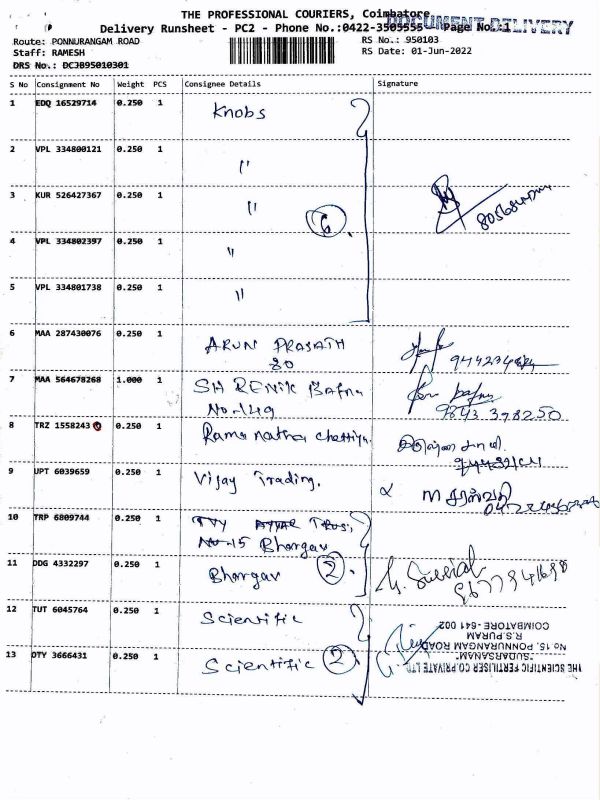 THE PROFESSIONAL COURIERS, Coimbatore
DOCUMENT DELIVERY
Delivery Runsheet - PC2 - Phone No.:0422-3505555 Page No.:1
Route: PONNURANGAM ROAD
RS No.: 950103
Staff: RAMESH
RS Date: 01-Jun-2022
DRS No.: DCJB95010301
S No Consignment No Weight PCS Consignee Details Signature
1 EDQ 16529714 0.250 1 Knobs
2 VPL 334800121 0.250 1 "
3 KUR 526427367 0.250 1 " 6.
4 VPL 334802397 0.250 1 "
5 VPL 334801738 0.250 1 "
6 MAA 287430076 0.250 1 ARUN PRASATH
80
7 MAA 564678268 1.000 1 SHRENIK Bafna
No-149 9843 398250
8 TRZ 1558243 0.250 1 Rama natha Chettiyar
9 UPT 6039659 0.250 1 Vijay Trading.
10 TRP 6809744 0.250 1
No-15 Bhargav
11 DDG 4332297 0.250 1 Bhargav 2.
12 TUT 6045764 0.250 1 Scientific
13 OTY 3666431 0.250 1 Scientific 2.
THE SCIENTIFIC FERTILISER CO.PRIVATE LTD
"SUDARSANAM"
No 15. PONNURANGAM ROAD
R.S.PURAM
COIMBATORE -641 002